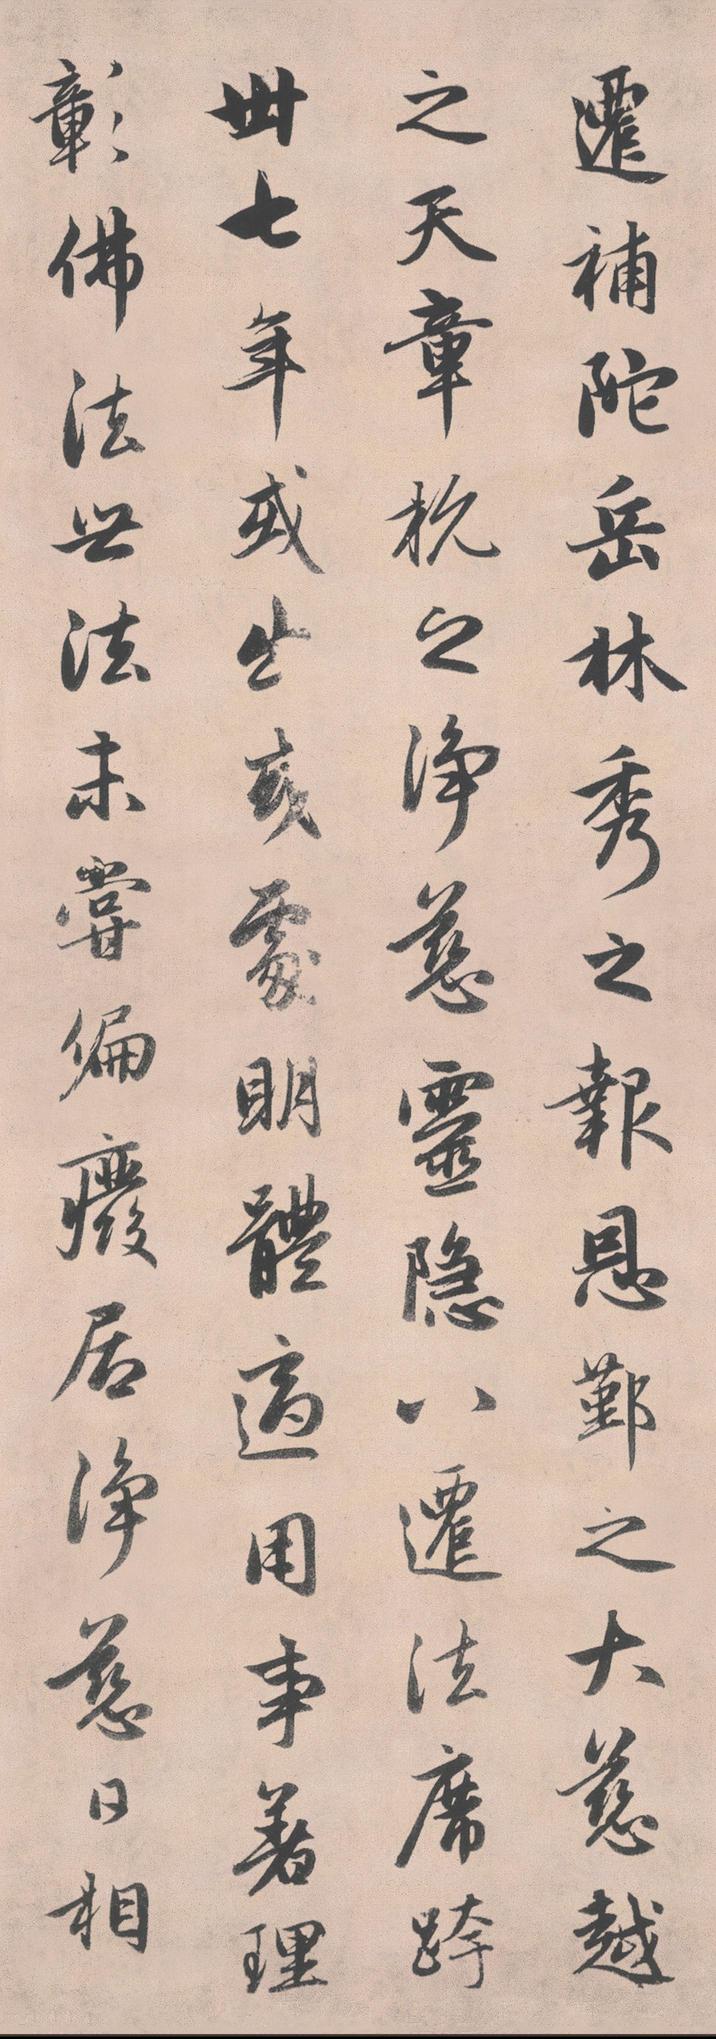 遷補陀岳林秀之報恩鄞之大慈越
之天章杭之淨慈靈隐八遷法席跨
丗七年或出或處明體適用事著理
彰佛法世法未甞偏廢居淨慈日相